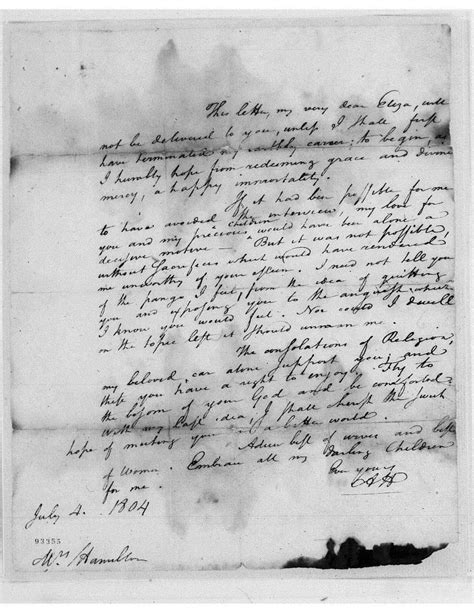 This letter, my very dear Eliza, will
not be delivered to you, unless I shall first
have terminated my earthly career; to begin, as
I humbly hope from redeeming grace and divine
mercy, a happy immortality.
If it had been possible for me
to have avoided the interview, my love for
you and my precious children would have been alone a
decisive motive. But it was not possible,
without sacrifices which would have rendered
me unworthy of your esteem. I need not tell you
of the pangs I feel, from the idea of quitting
you and exposing you to the anguish which
I know you would feel. Nor could I dwell
on the topic lest it should unman me.
The consolations of Religion,
my beloved, can alone support you; and
these you have a right to enjoy. Fly to
the bosom of your God and be comforted.
With my last idea, I shall cherish the sweet
hope of meeting you in a better world.
Adieu best of wives and best
of Women. Embrace all my darling Children
for me.
Ever yours
AH
July 4. 1804
93355
Mrs Hamilton